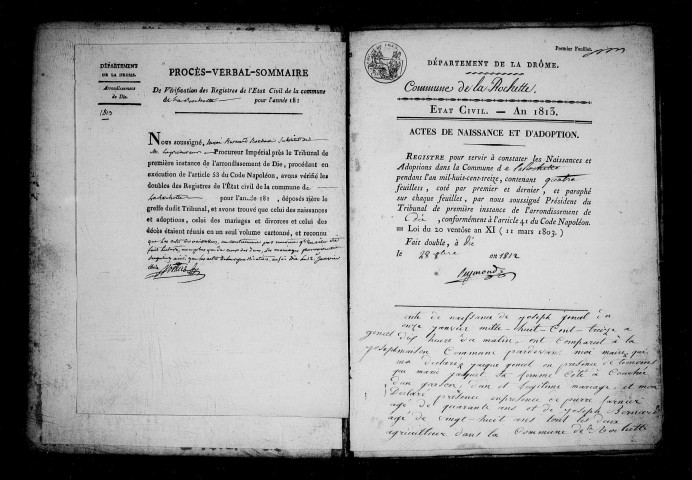 DÉPARTEMENT
DE LA DRÔME.
Arrondissement
de Die.
1813
PROCÈS-VERBAL-SOMMAIRE
De Vérification des Registres de l'Etat Civil de la commune
de la Rochette pour l'année 181
Nous soussigné,
Procureur Impérial près le Tribunal de
première instance de l'arrondissement de Die, procédant en
exécution de l'article 53 du Code Napoléon, avons vérifié les
doubles des Registres de l'État civil de la commune de
la Rochette pour l'année 181 , déposés rière le
greffe dudit Tribunal, et avons trouvé que celui des naissances
et adoptions, celui des mariages et divorces et celui des
décès étaient réunis en un seul volume cartonné, et reconnu
que les actes
Premier Feuillet.
DÉPARTEMENT DE LA DRÔME.
Commune de la Rochette
ETAT CIVIL. — AN 1813.
ACTES DE NAISSANCE ET D'ADOPTION.
REGISTRE pour servir à constater les Naissances et
Adoptions dans la Commune de la Rochette
pendant l'an mil-huit-cent-treize, contenant quatre
feuillets, coté par premier et dernier, et paraphé
sur chaque feuillet, par nous soussigné Président du
Tribunal de première instance de l'arrondissement de
Die, conformément à l'article 41 du Code Napoléon.
Loi du 20 ventôse an XI (11 mars 1803.)
Fait double, à Die
le 28 9bre an 1812
acte de naissance de joseph geniel du
onze janvier mille-huit-Cent-treize a
geniel dix heure du matin, ont Comparut a la
joseph maison Commune pardevant moi maire, qui
ma declaré jacque geniel en presence de temoins
que marie jaquet Sa femme Cété acouchée
dun garson dun et legitime mariage et mon
Declaré presence en presence de pierre
agé de quarante ans et de joseph Bernard
agé de vingt-huit ans tout les deux
agriculteur dans la Commune de la rochette